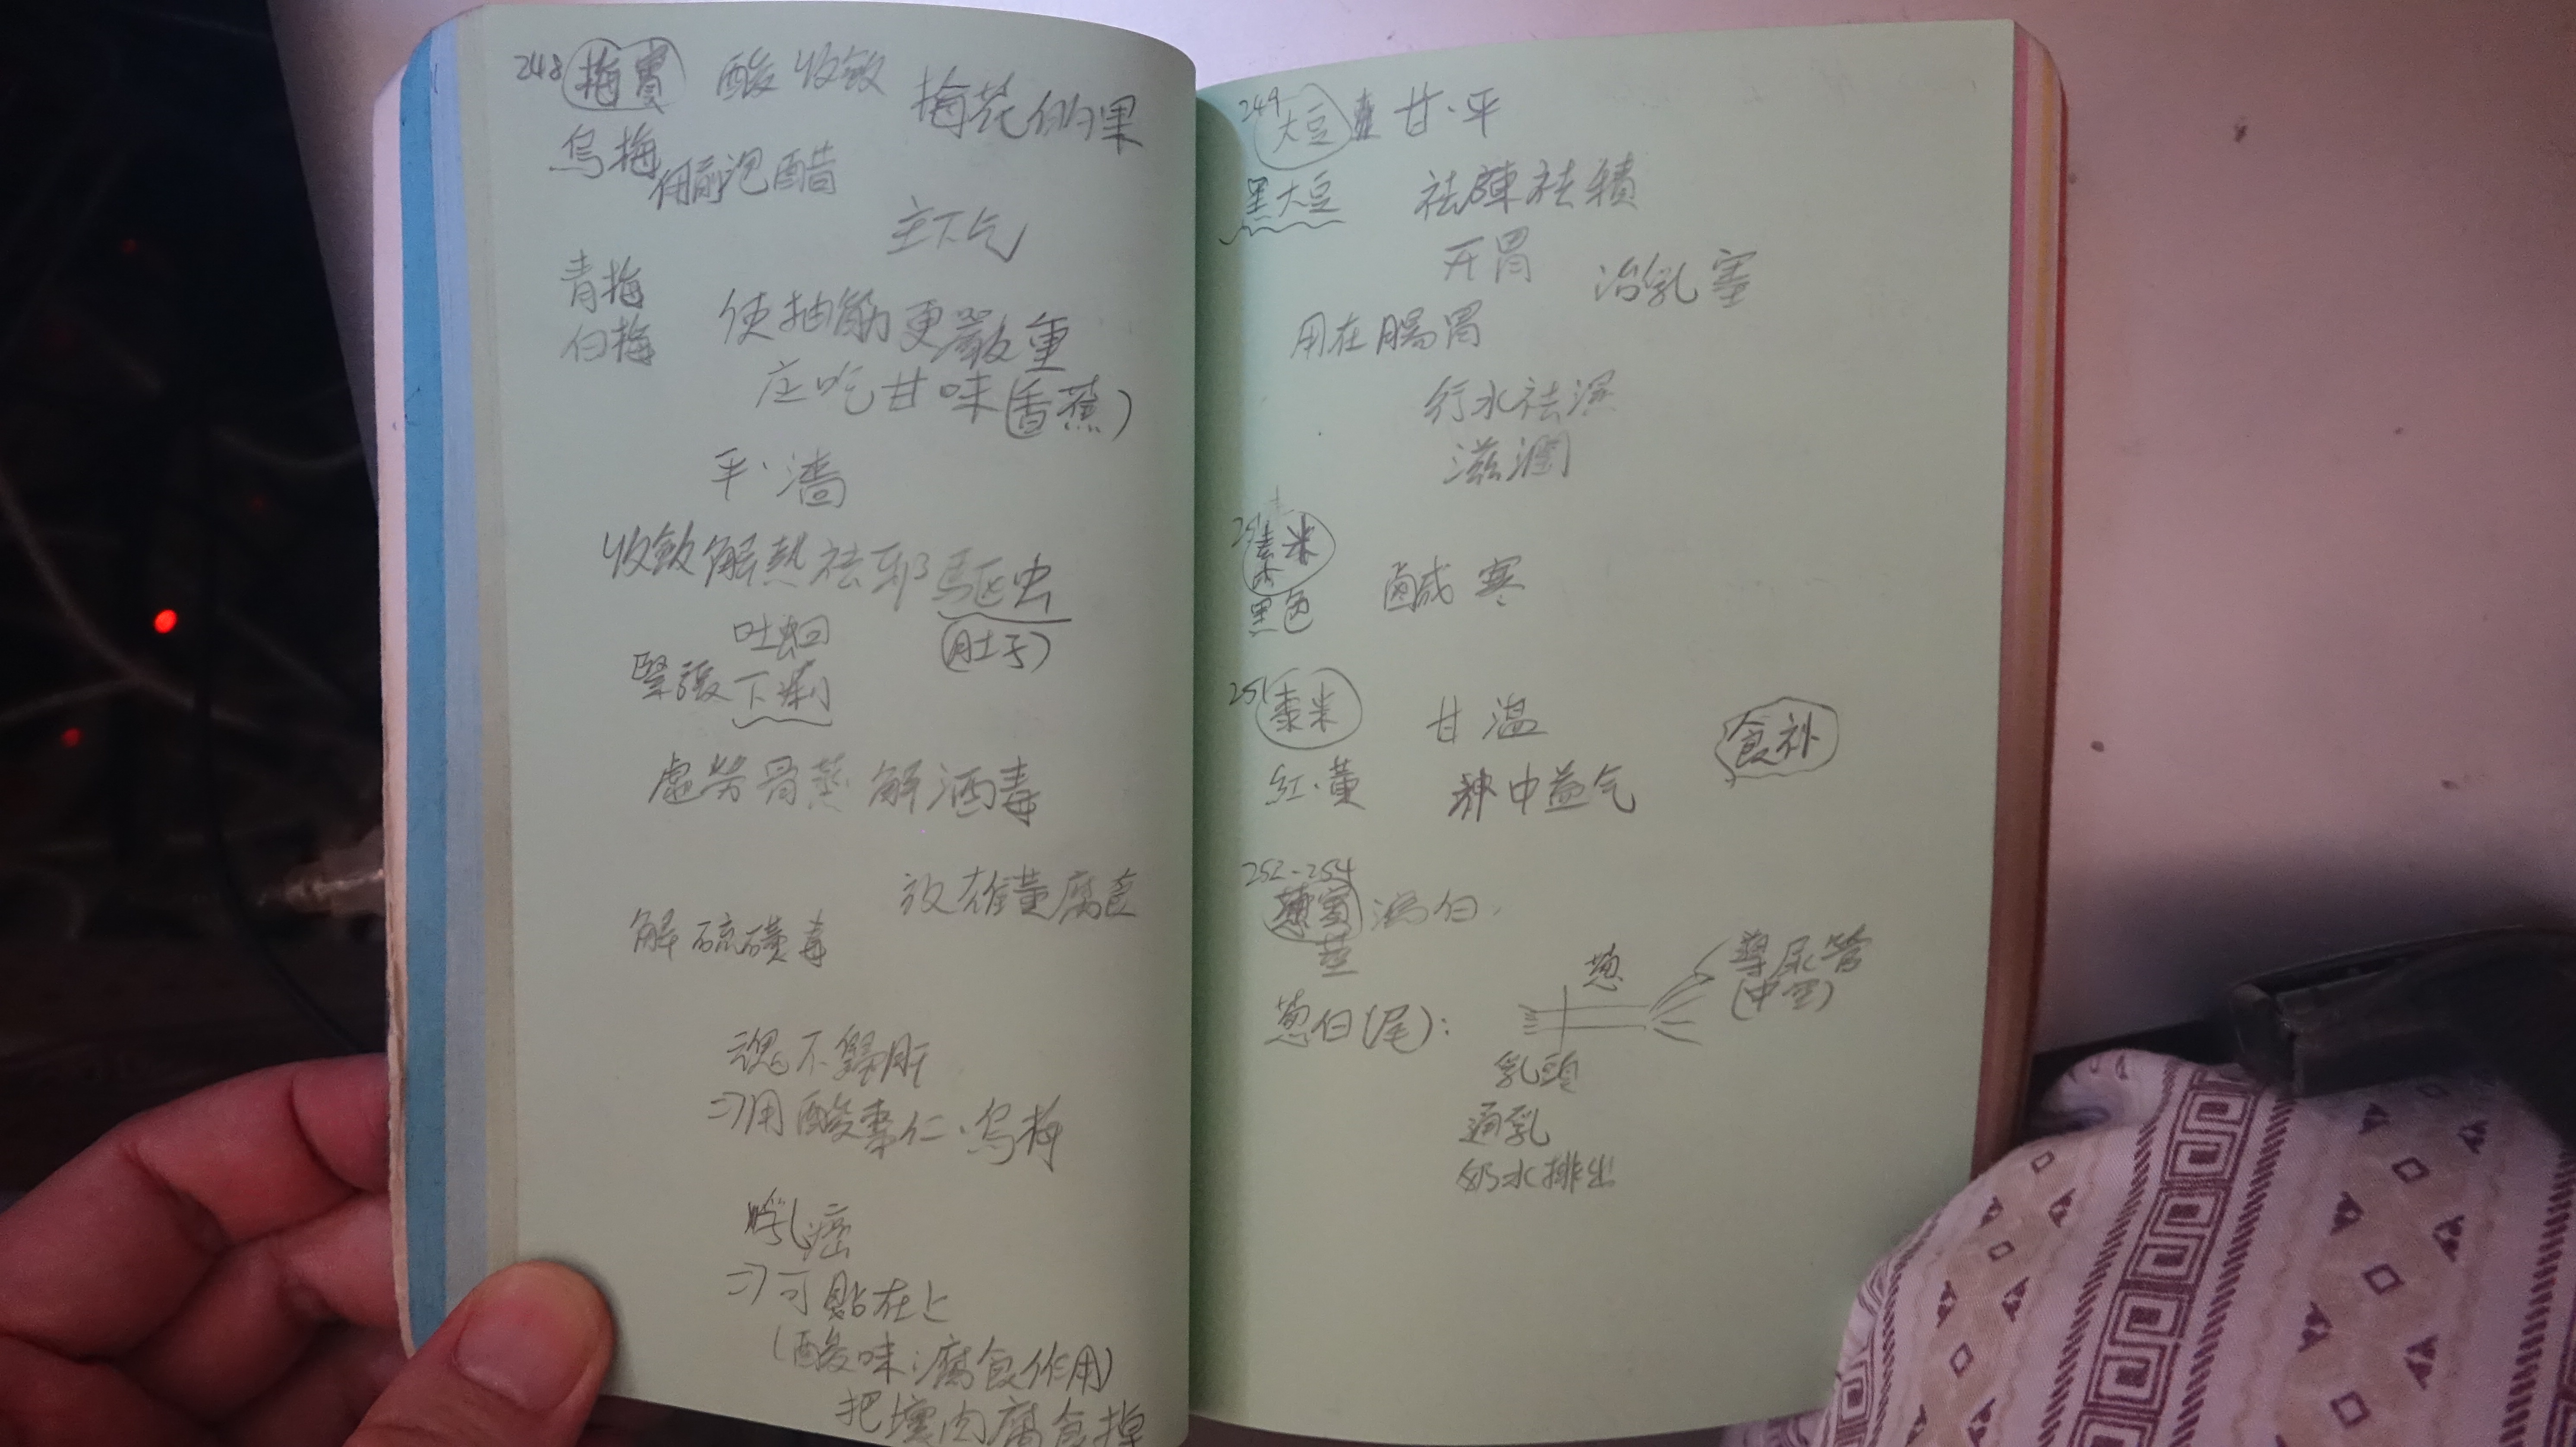 248 梅實 酸 收斂
梅花的果
烏梅
用前泡醋
主下气
青梅
白梅
使抽筋更嚴重
应吃甘味(香蕉)
平、濇
收斂解熱祛邪驅虫
(肚子)
吐蛔
緊張下痢
虛勞骨蒸 解酒毒
放雄黃腐食
解硫磺毒
魂不歸肝
⇒用酸棗仁、烏梅
乳癌
⇒可貼在上
(酸味:腐食作用)
把壞肉腐食掉
249 大豆 甘、平
黑大豆
祛陳祛積
开胃
治乳塞
用在腸胃
行水祛濕
滋潤
米
黑色
鹹 寒
251 黍米 甘 溫
食补
紅、黃
补中益气
252-254
葱實 瀉白
莖
葱
導尿管
(中空)
葱白(尾):
乳頭
通乳
奶水排出